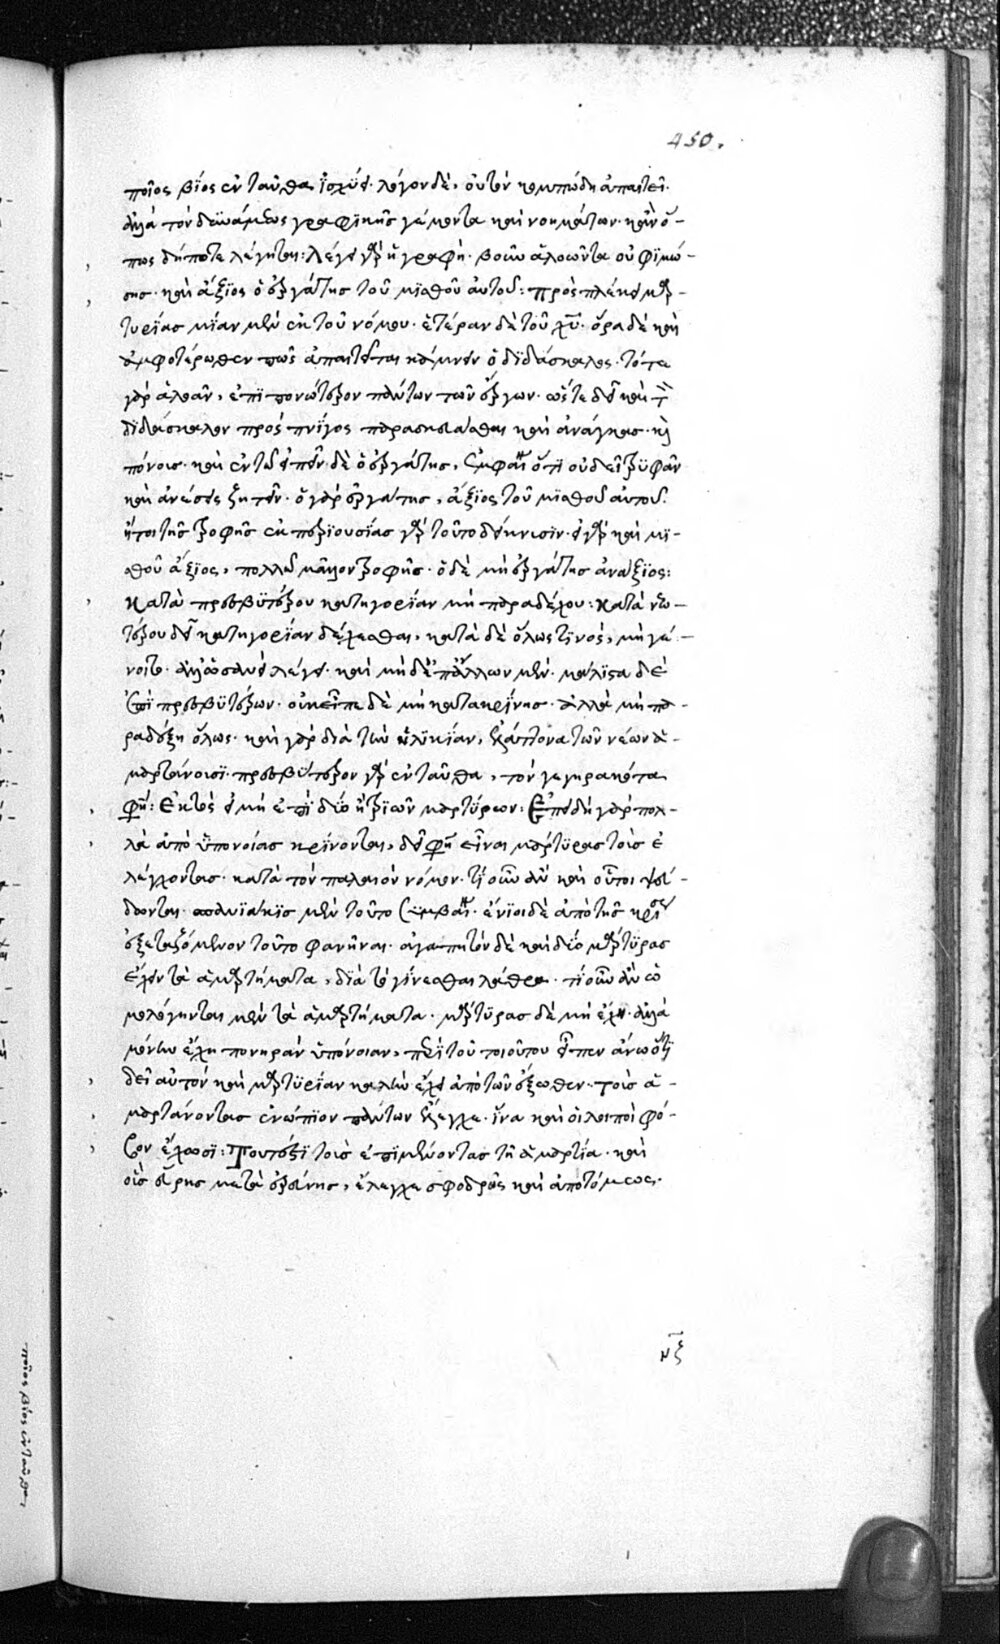 450.
ποῖος βίος ἐνταῦθα ἰσχύει. λόγον δὲ, οὐ τὸν κομπώδη ἀπαιτεῖ.
ἀλλὰ τὸν δυνάμεως γραφικῆς γέμοντα καὶ νοημάτων. κἂν ὅ-
πως δήποτε λέγηται: Λέγει γὰρ ἡ γραφή. βοῦν ἀλοῶντα οὐ φιμώ-
σης. καὶ ἄξιος ὁ ἐργάτης τοῦ μισθοῦ αὐτοῦ: Πρὸς πλέκει μαρ-
τυρίας μίαν μὲν ἐκ τοῦ νόμου. ἑτέραν δὲ τοῦ χυ. ὅρα δὲ καὶ
ἀμφοτέρωθεν πῶς ἀπαιτεῖται κάμνειν ὁ διδάσκαλος. τό τε
γὰρ ἀλοᾶν, ἐπιπονώτερον πάντων τῶν ἔργων. ὥστε δεῖ καὶ τὸν
διδάσκαλον πρὸς πνίγος παρασκευάσθαι καὶ ἀνάγκας. καὶ
πόνοις. καὶ ἐν τῷ εἰπεῖν δὲ ὁ ἐργάτης, ἐμφαίνει ὅτι οὐ δεῖ τρυφᾶν
καὶ ἀνέσεις ζητεῖν. ὁ γὰρ ἐργάτης, ἄξιος τοῦ μισθοῦ αὐτοῦ.
ἤτοι τῆς τροφῆς ἐκ περιουσίας γὰρ τοῦτο δείκνυσιν. εἰ γὰρ καὶ μι-
σθοῦ ἄξιος, πολλῷ μᾶλλον τροφῆς. ὁ δὲ μὴ ἐργάτης ἀνάξιος:
Κατὰ πρεσβυτέρου κατηγορίαν μὴ παραδέχου: Κατὰ νεω-
τέρου δεῖ κατηγορίαν δέχεσθαι, κατὰ δὲ ὅλως τινὸς, μὴ γέ-
νοιτο. ἀλλ' ὡσανεὶ λέγει. καὶ μηδὲ ἐπ' ἄλλων μὲν. μάλιστα δὲ
ἐπὶ πρεσβυτέρων. οὐκ εἶπε δὲ μὴ κατακρίνης. ἀλλὰ μὴ πα-
ραδέξῃ ὅλως. καὶ γὰρ διὰ τὴν ἡλικίαν, ἐλάττονα τῶν νέων ἁ-
μαρτάνουσι. πρεσβύτερον γὰρ ἐνταῦθα, τὸν γεγηρακότα
φησι: Ἐκτὸς εἰ μὴ ἐπὶ δύο ἢ τριῶν μαρτύρων: Ἐπειδὴ γὰρ πολ-
λὰ ἀπὸ ὑπονοίας κρίνονται, δεῖ φησι εἶναι μάρτυρας τοὺς ἐ
λέγχοντας. κατὰ τὸν παλαιὸν νόμον. τί οὖν ἂν καὶ οὗτοι ψεύ-
δωνται. πολλάκις μὲν τοῦτο συμβαίνει. ἔνιοι δὲ ἀπὸ τῆς κρίσεως
ἐξεταζόμενον τοῦτο φανῆναι. ἀγαπητὸν δὲ καὶ δύο μάρτυρας
ἔχειν τὰ ἁμαρτήματα, διὰ τὸ γίνεσθαι λάθρα. τί οὖν ἂν ὁ
μολόγηνται μὲν τὰ ἁμαρτήματα. μάρτυρας δὲ μὴ ἔχῃ. ἀλλὰ
μόνην ἔχῃ πονηρὰν ὑπόνοιαν, περὶ τοῦ τοιούτου εἶπεν ἄνω ὅτι
δεῖ αὐτὸν καὶ μαρτυρίαν καλὴν ἔχειν ἀπὸ τῶν ἔξωθεν. τοὺς ἁ-
μαρτάνοντας ἐνώπιον πάντων ἔλεγχε. ἵνα καὶ οἱ λοιποὶ φό-
βον ἔχωσι: Τουτέστι τοὺς ἐπιμένοντας τῇ ἁμαρτία. καὶ
οὓς εὕρης μετὰ ἐρεύνης, ἔλεγχε σφοδρῶς καὶ ἀποτόμως.
νξ
ποῖος βίος ἐνταῦθα,